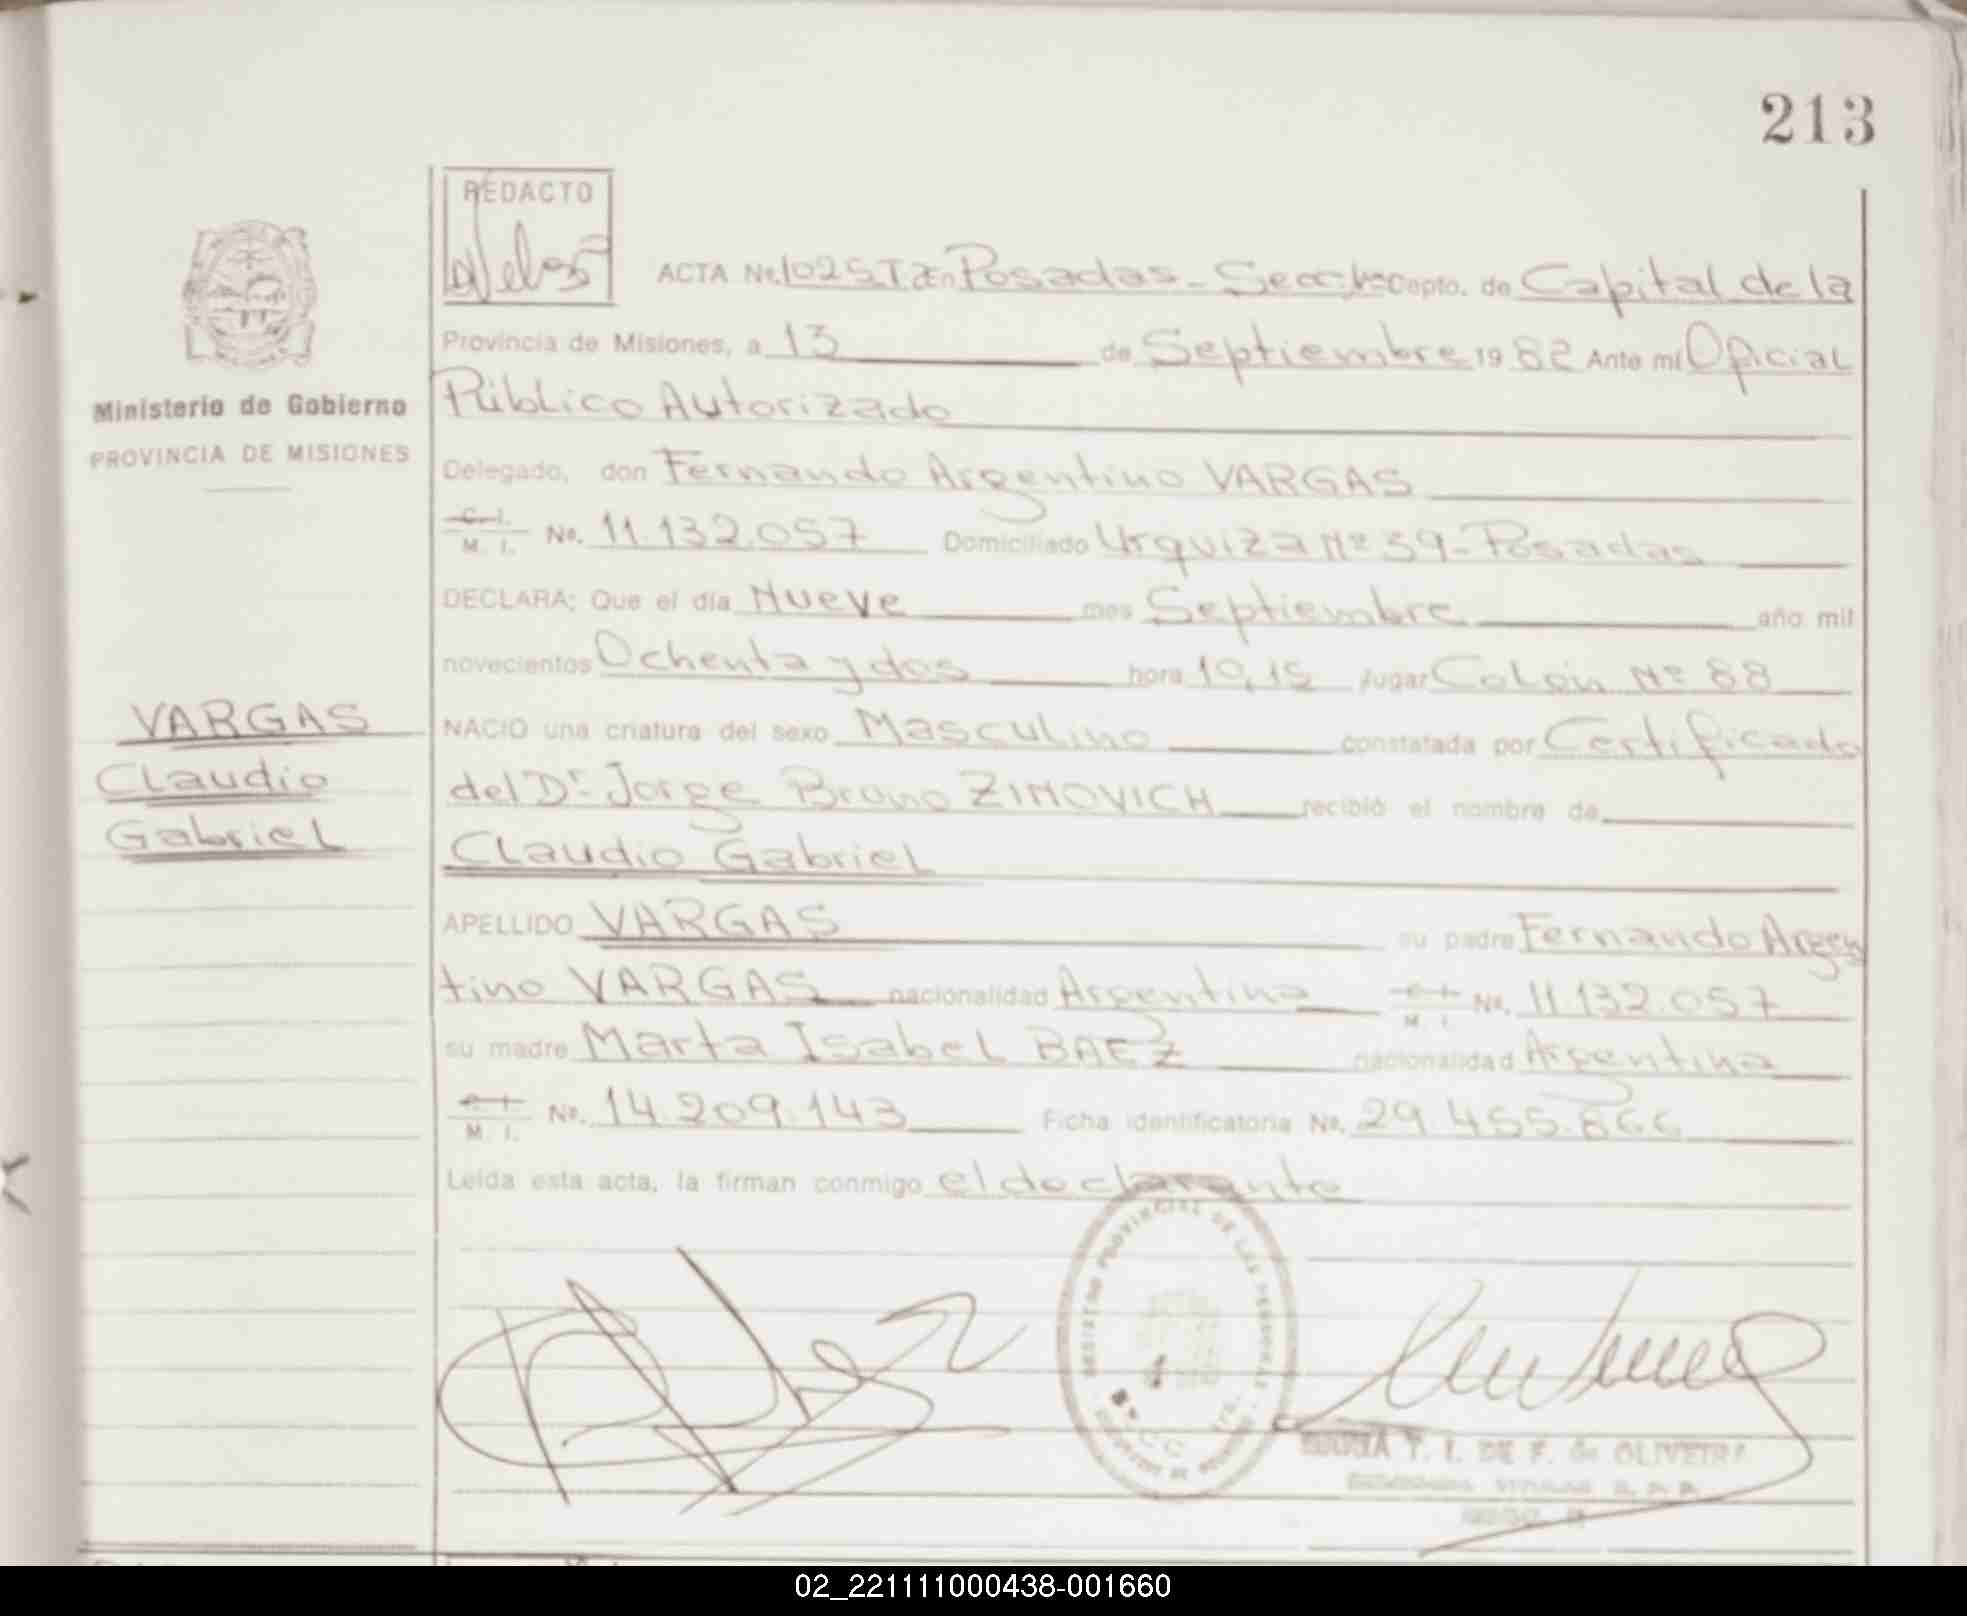 213
REDACTO
ACTA No. 1025 T en Posadas - Depto. de Capital de la
Provincia de Misiones, a 13 de Septiembre 19 82 Ante mí Oficial
Público Autorizado
Ministerio de Gobierno
PROVINCIA DE MISIONES
Delegado, don Fernando Argentino VARGAS
C. I.
M. I. No. 11.132.057 Domiciliado Urquiza Nº 39 - Posadas
DECLARA: Que el día Nueve mes Septiembre año mil
novecientos Ochenta y dos hora 10,15 lugar Colón Nº 88
VARGAS
Claudio
Gabriel
NACIO una criatura del sexo Masculino constatada por Certificado
del Dr. Jorge Bruno ZIMOVICH recibió el nombre de
Claudio Gabriel
APELLIDO VARGAS su padre Fernando Argen
tino VARGAS nacionalidad Argentina C. I. M. I. No. 11.132.057
su madre Marta Isabel BAEZ nacionalidad Argentina
C. I.
M. I. No. 14.209.143 Ficha identificatoria No. 29.455.866
Leída esta acta, la firman conmigo el declarante
REGISTRO PROVINCIAL DE LAS PERSONAS
T. I. DE F. de OLIVEIRA
02_221111000438-001660